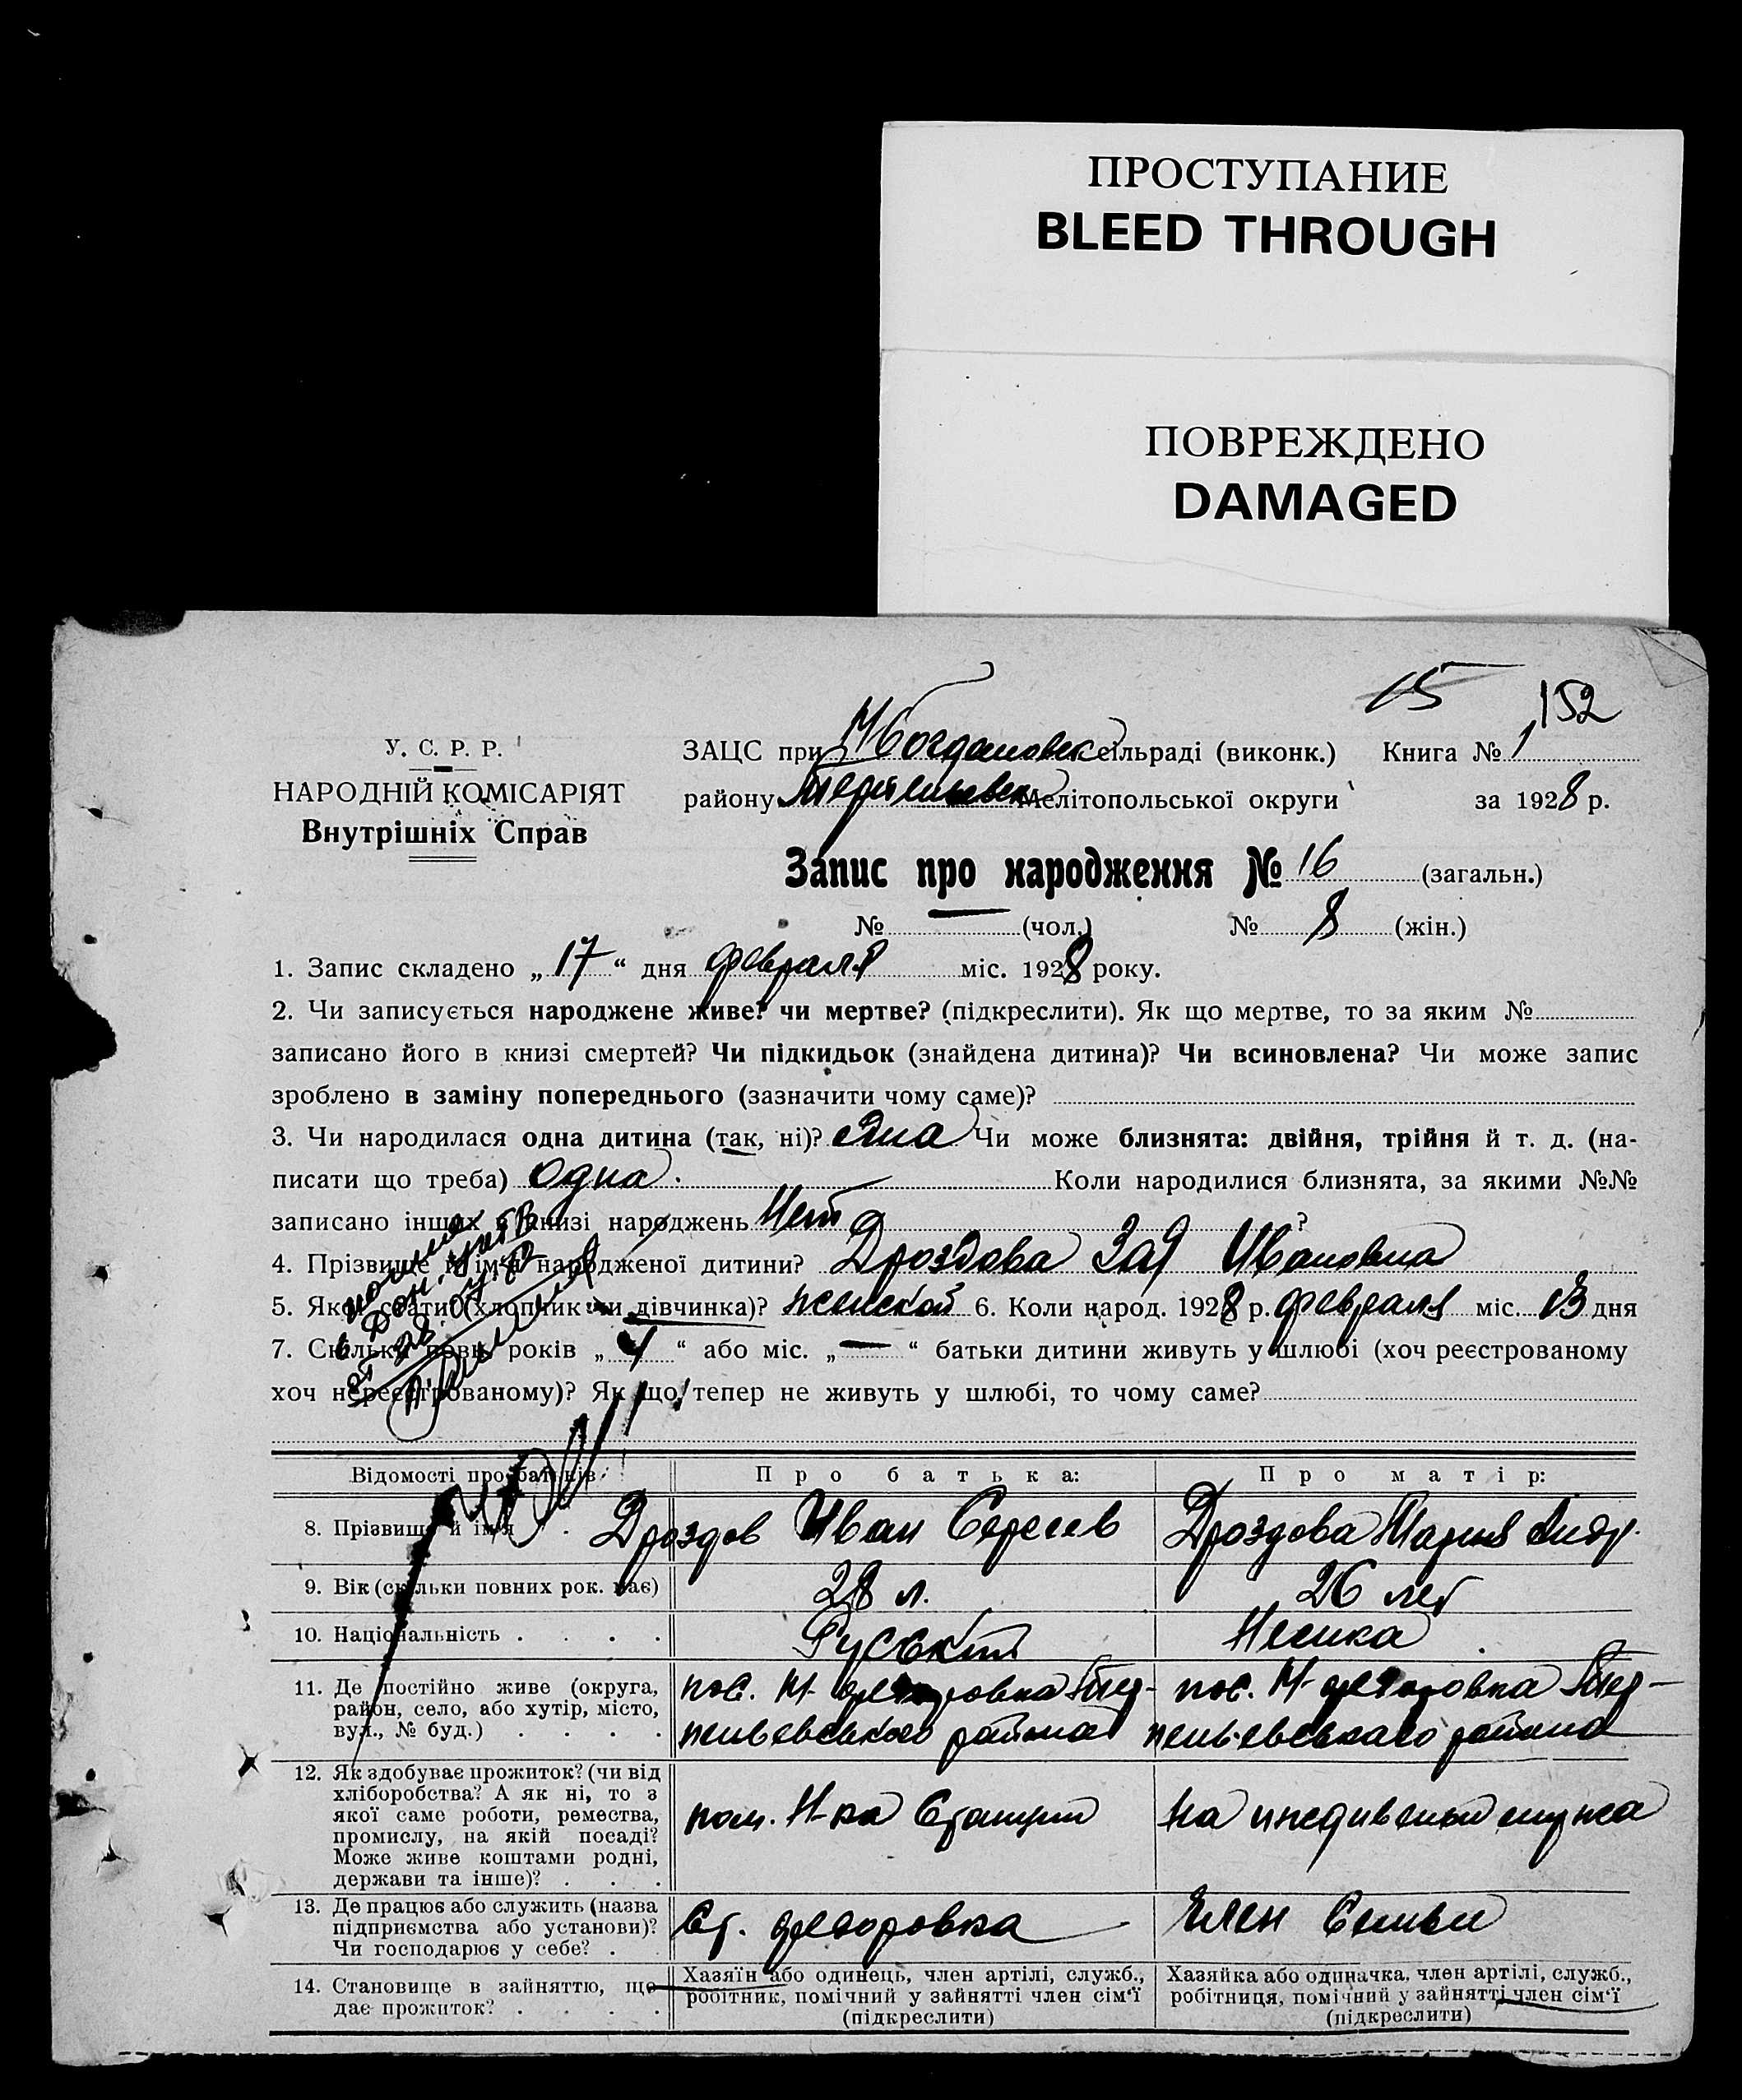 ПРОСТУПАНИЕ
BLEED THROUGH
ПОВРЕЖДЕНО
DAMAGED
15 152
У. С. Р. Р.
НАРОДНІЙ КОМІСАРІЯТ
Внутрішніх Справ
ЗАЦС при М Богдановск сільраді (виконк.) Книга № 1
району Терпеньевск Мелітопольської округи за 1928 р.
Запис про народження № 16 (загальн.)
№ — (чол.) № 8 (жін.)
1. Запис складено „ 17 “ дня февраля міс. 1928 року.
2. Чи записується народжене живе? чи мертве? (підкреслити). Як що мертве, то за яким №
записано його в книзі смертей? Чи підкидьок (знайдена дитина)? Чи всиновлена? Чи може запис
зроблено в заміну попереднього (зазначити чому саме)?
3. Чи народилася одна дитина (так, ні)? Чи може близнята: двійня, трійня й т. д. (на-
писати що треба) одна. Коли народилися близнята, за якими №№
записано інших в книзі народжень Нет ?
4. Прізвище й ім'я народженої дитини? Дроздова Зая Ивановна
5. Якої статі (хлопчик чи дівчинка)? женской 6. Коли народ. 1928 р. февраля міс. 13 дня
7. Скільки повн. років „ 4 “ або міс. „ — “ батьки дитини живуть у шлюбі (хоч реєстрованому
хоч нереєстрованому)? Як що тепер не живуть у шлюбі, то чому саме?
Відомості про батьків: Про батька: Про матір:
8. Прізвище й ім'я . Дроздов Иван Сергеев Дроздова Мария Андр.
9. Вік (скільки повних рок. має) 28 л. 26 лет
10. Національність . . . . Русский Немка
11. Де постійно живе (округа, район, село, або хутір, місто, вул., № буд.) . . . .
пос. М-федоровка Тер-
пеньевського района
пос. М-федоровка Тер-
пеньевскаго района
12. Як здобуває прожиток? (чи від
хліборобства? А як ні, то з
якої саме роботи, ремества,
промислу, на якій посаді?
Може живе коштами родні,
держави та інше)? . . .
пом. Н-ка Станции
На иждивении мужа
13. Де працює або служить (назва
підприємства або установи)?
Чи господарює у себе? .
Ст. федоровка
Член Семьи
14. Становище в зайняттю, що
дає прожиток? . . . .
Хазяїн або одинець, член артілі, служб.,
робітник, помічний у зайнятті член сім'ї
(підкреслити)
Хазяйка або одиначка, член артілі, служб.,
робітниця, помічний у зайнятті член сім'ї
(підкреслити)